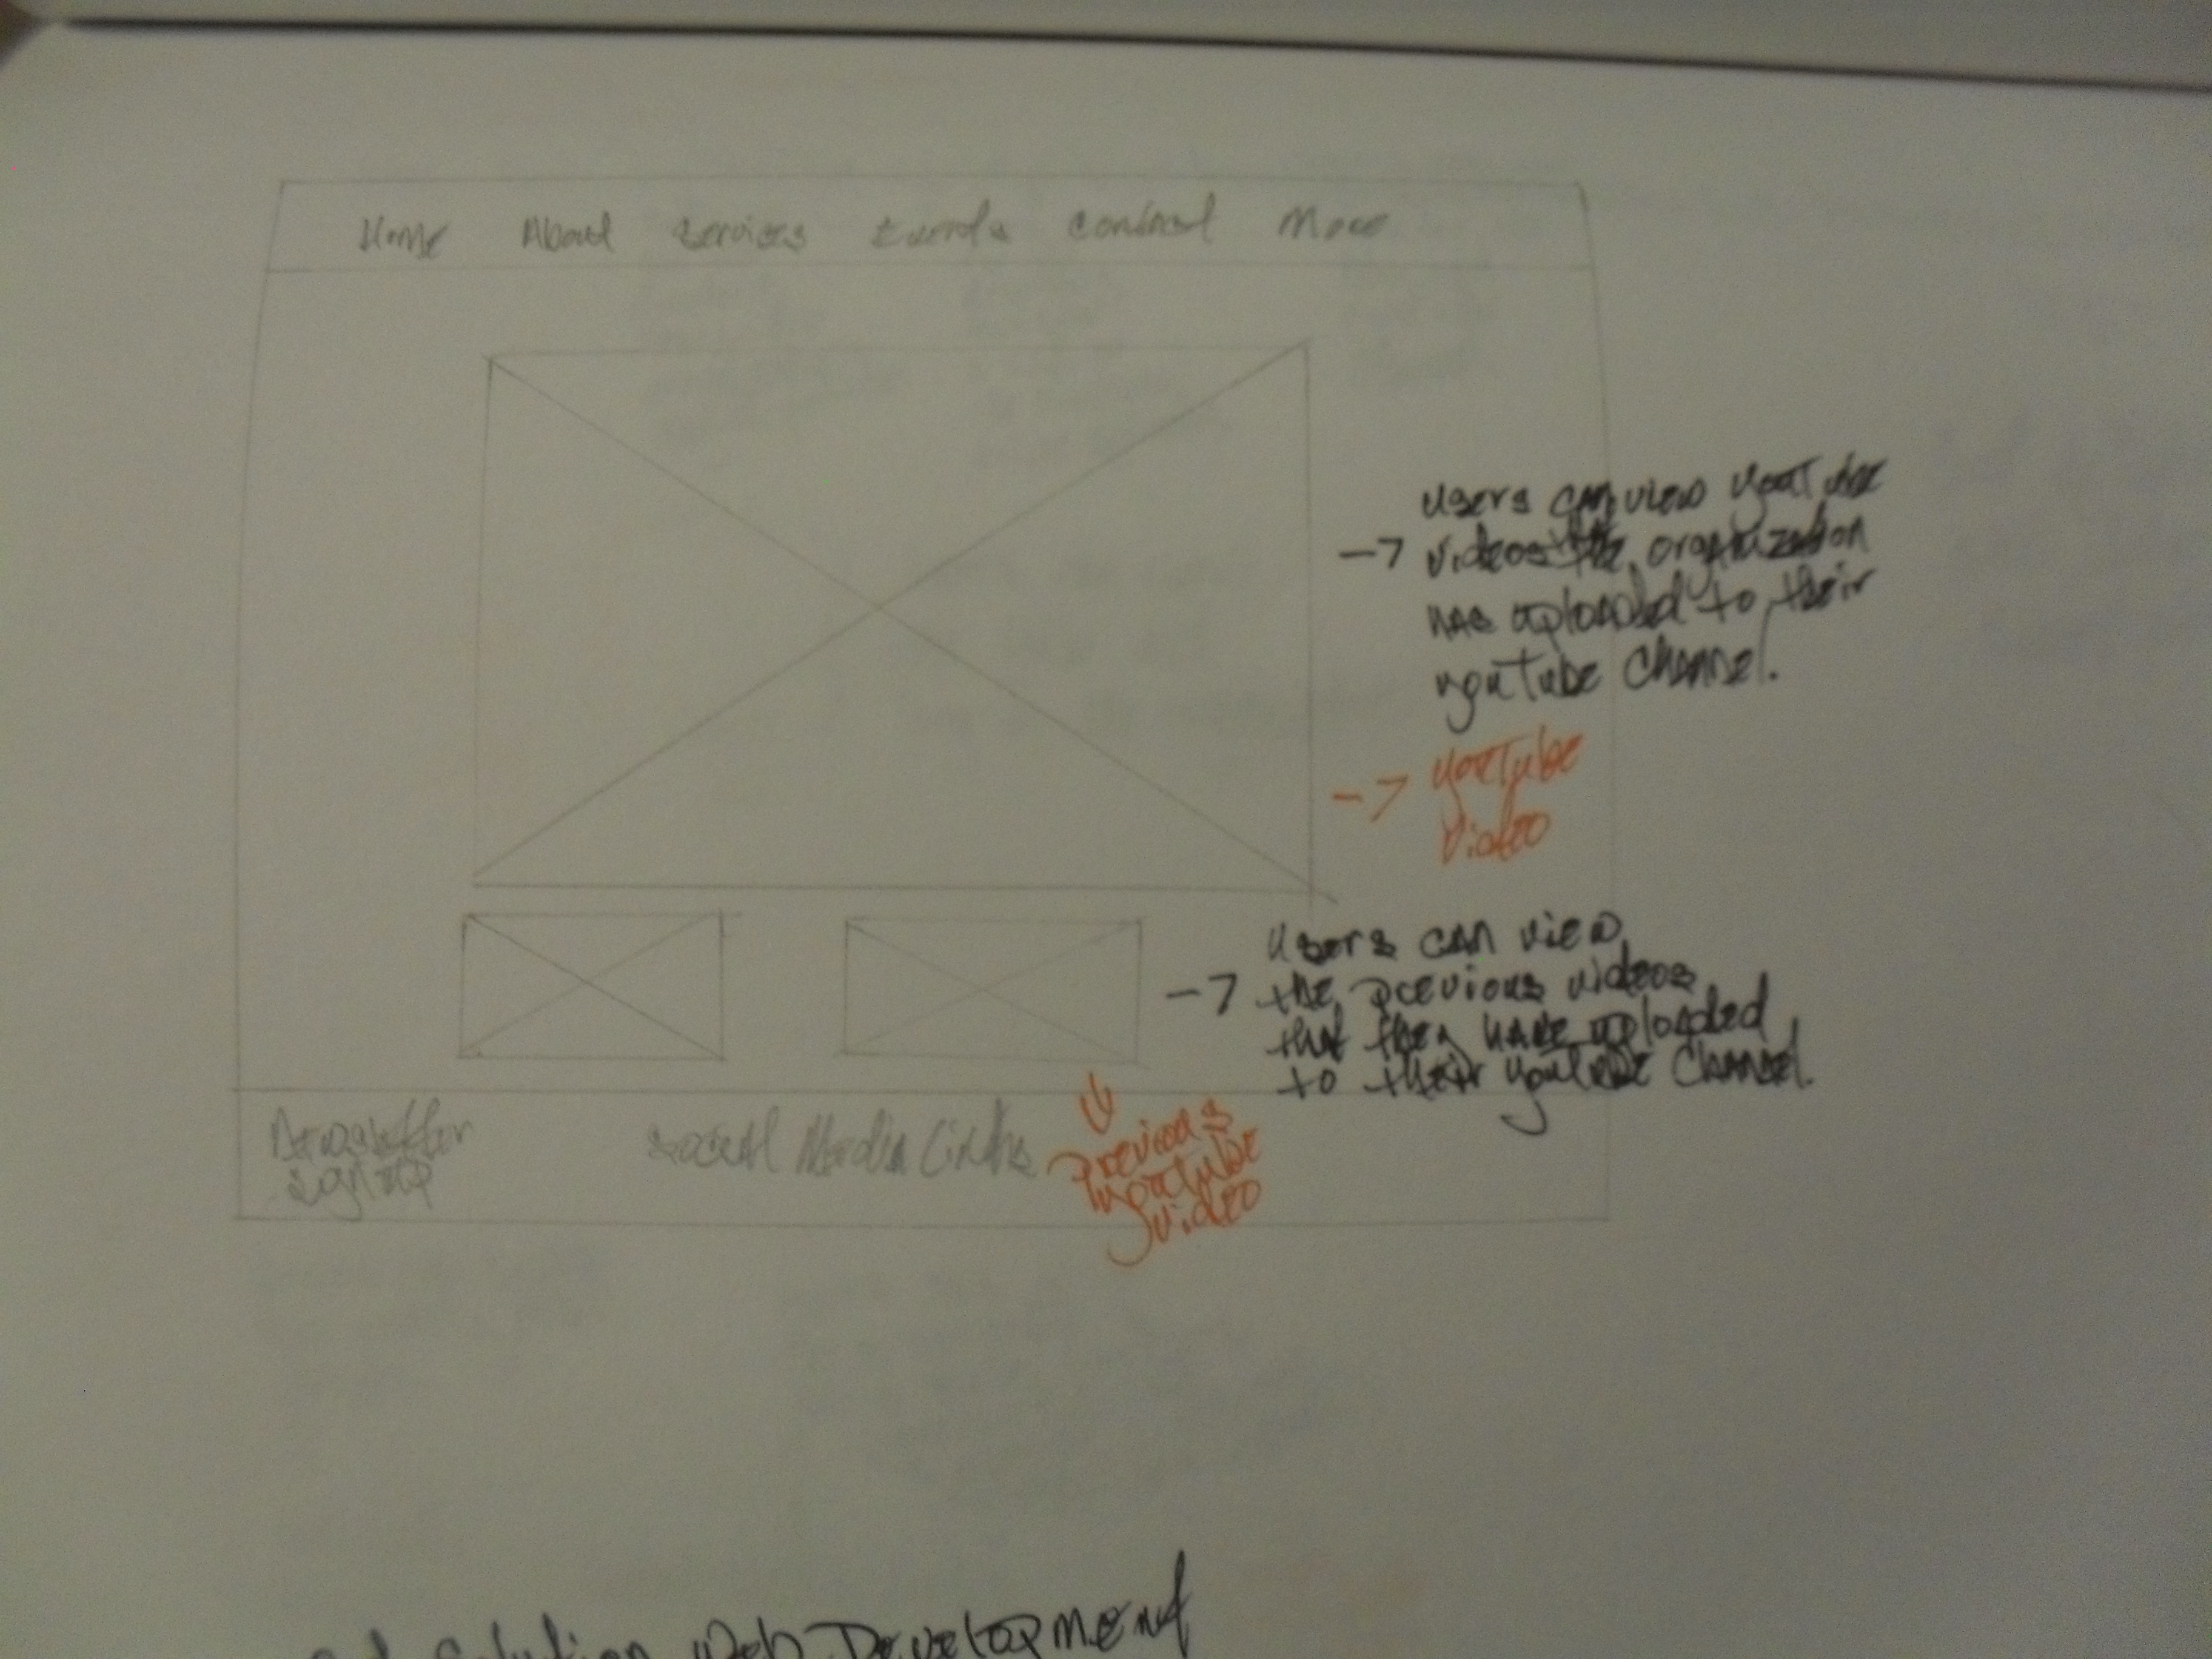 Home About Services Events Contact More
Users can view YouTube
-> videos the organization
has uploaded to their
youTube channel.
-> YouTube
Video
Users can view
-> the previous videos
that they have uploaded
to their YouTube channel.
Newsletter
sign up
Social Media Links
Previous
Youtube
Video
Solution Web Development